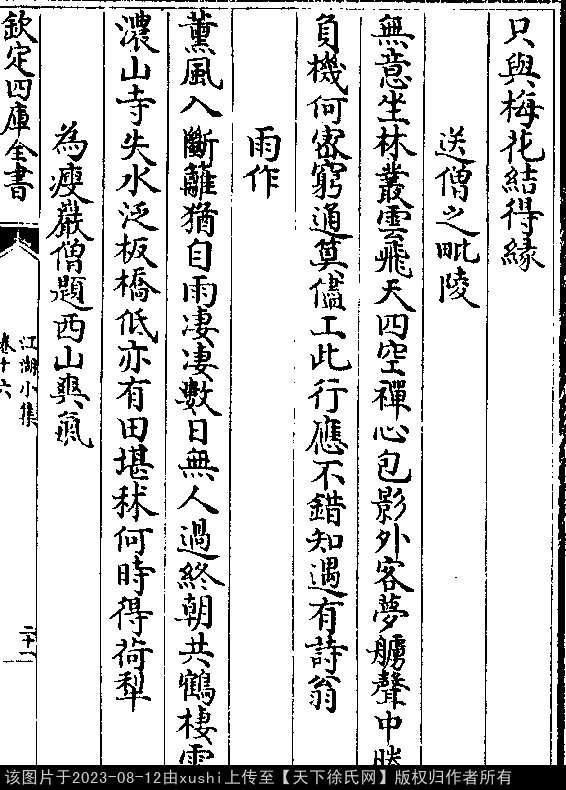 只與梅花結得緣
送僧之毗陵
無意坐林叢雲飛天四空禪心包影外客夢艣聲中勝
負機何密窮通算儘工此行應不錯知遇有詩翁
雨作
薰風入斷蘺猶自雨凄凄數日無人過終朝共鶴棲雲
濃山寺失水泛板橋低亦有田堪秫何時得荷犁
為瘦巖僧題西山爽氣
欽定四庫全書
江湖小集
卷十六
二十一
该图片于2023-08-12由xushi上传至【天下徐氏网】版权归作者所有